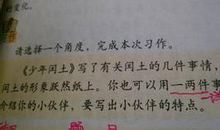 的变化。
请选择一个角度，完成本次习作。
《少年闰土》写了有关闰土的几件事情，
闰土的形象跃然纸上。你也可以用一两件事
介绍你的小伙伴，要写出小伙伴的特点。